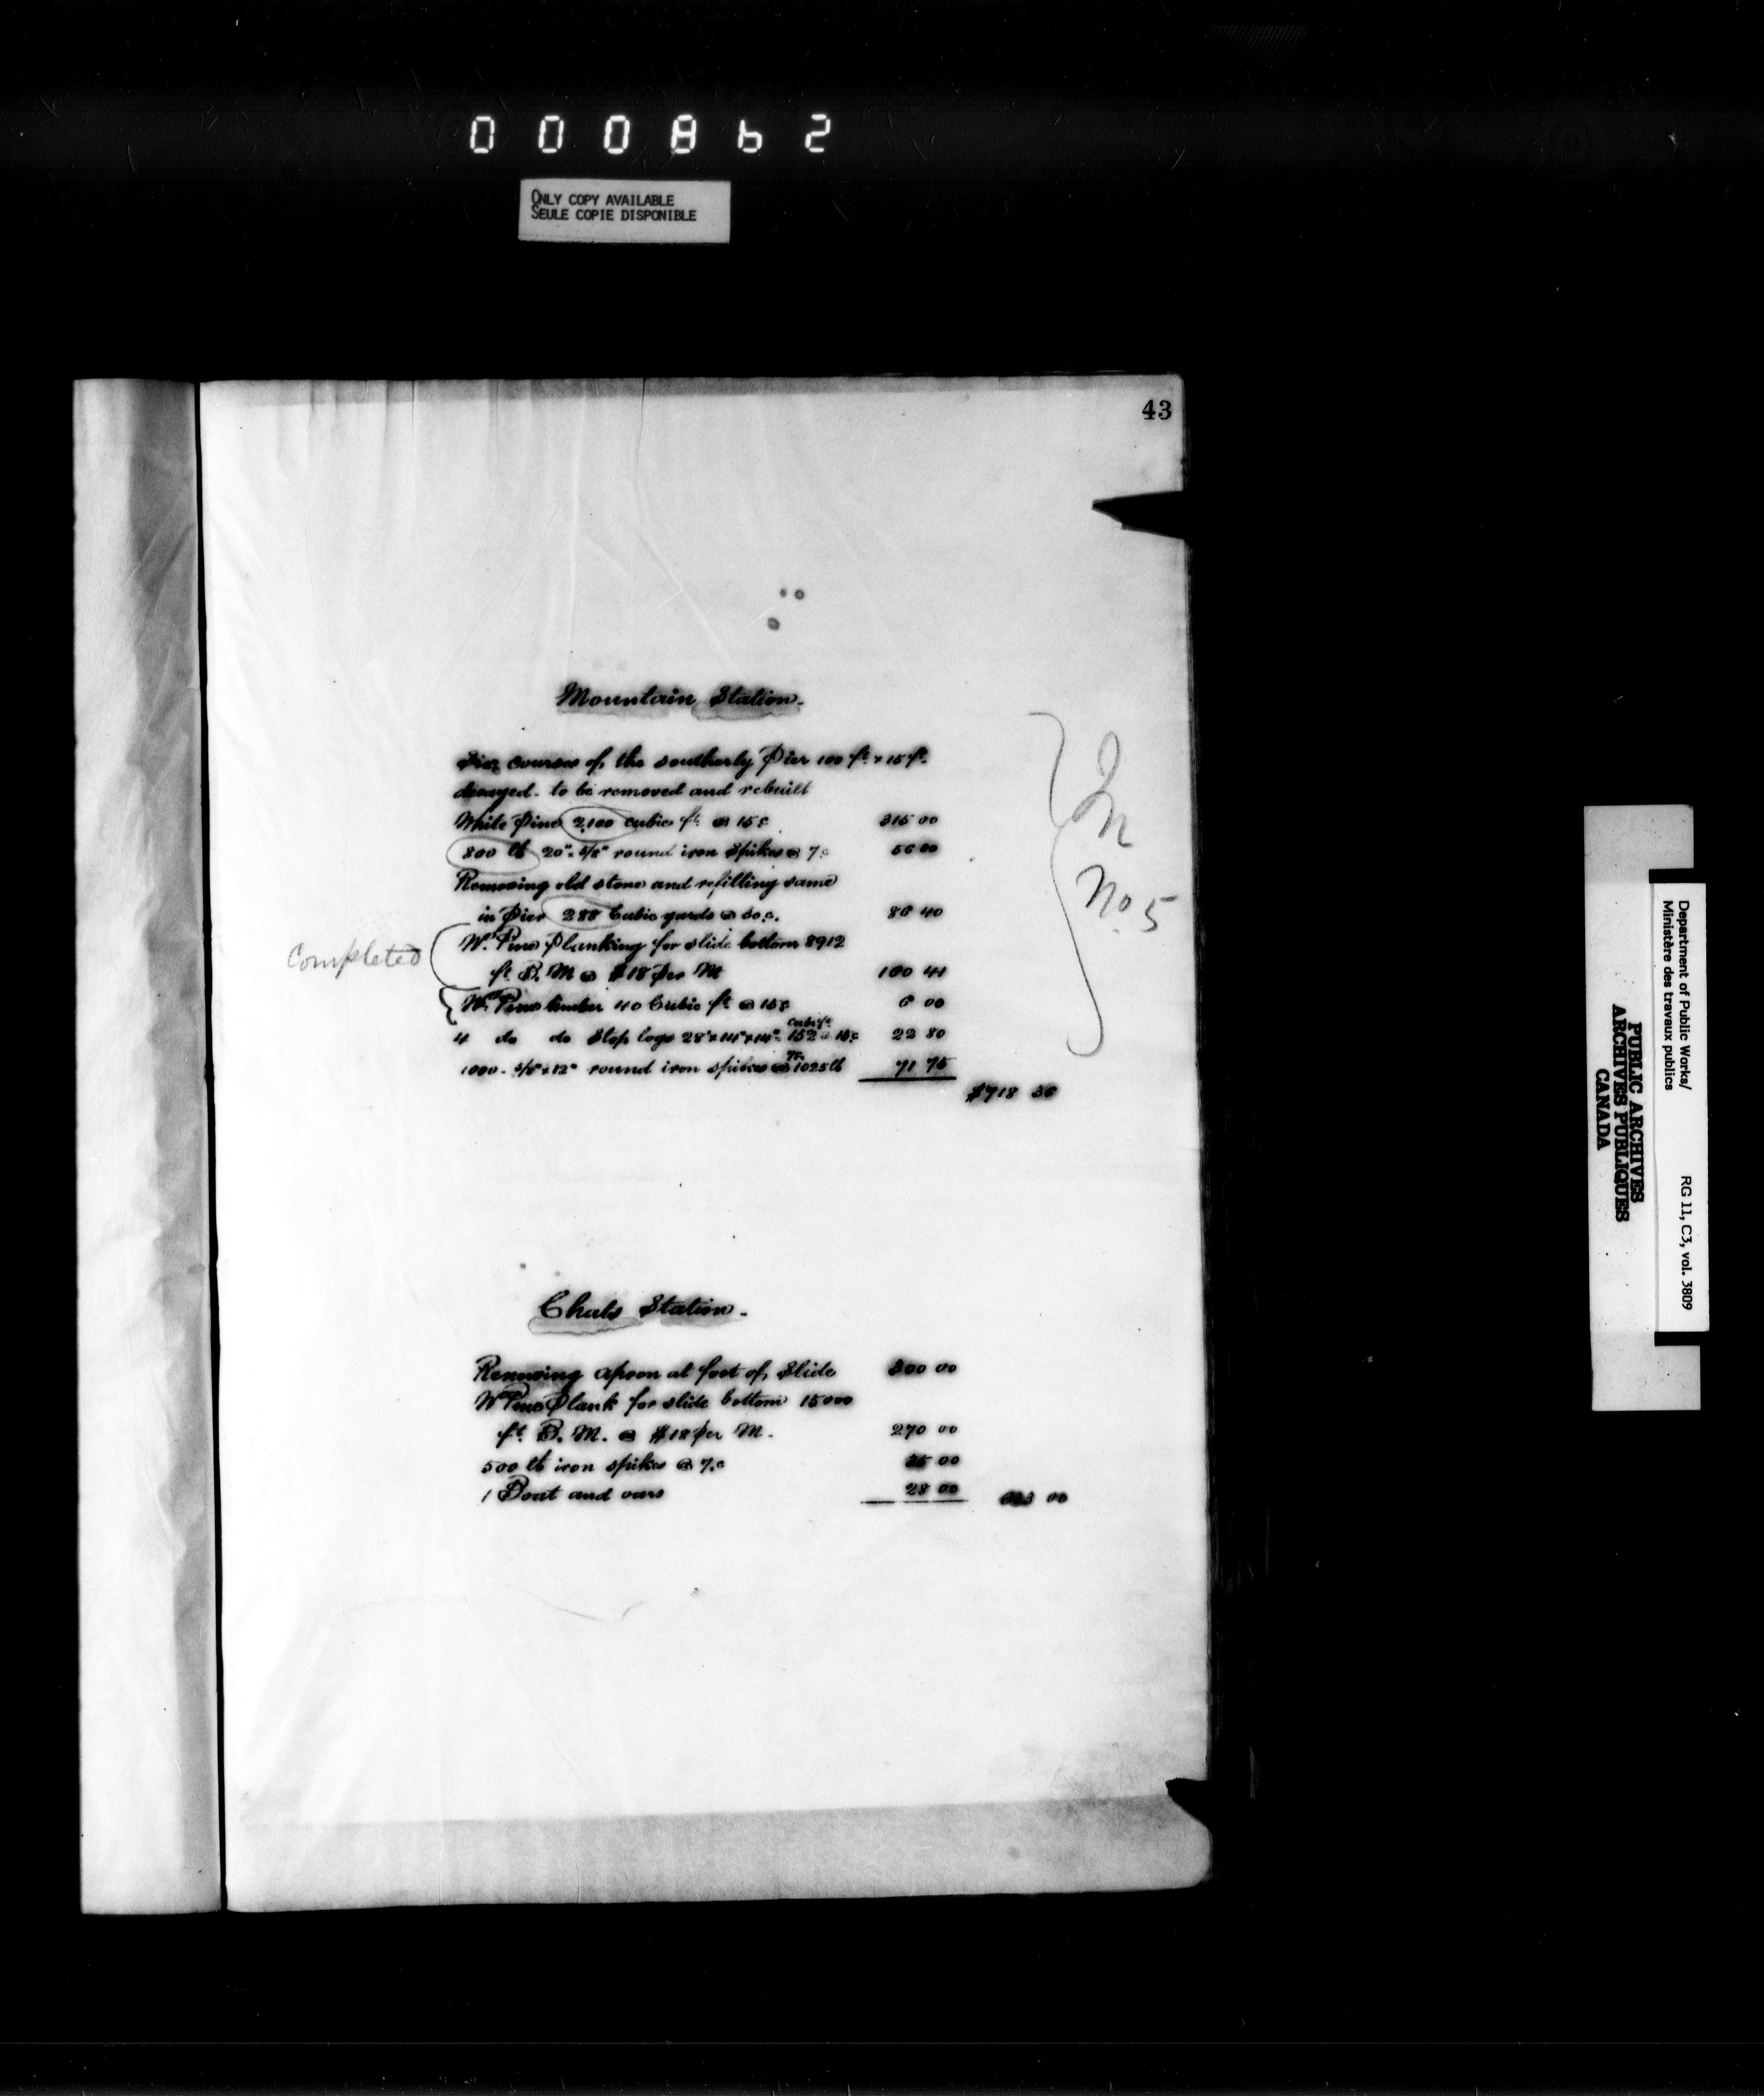 000862
ONLY COPY AVAILABLE
SEULE COPIE DISPONIBLE
43
Mountain Station.
Six courses of the southerly Pier 100 ft. x 15 ft.
decayed - to be removed and rebuilt
White Pine 2,100 cubic ft. @ 15c 315 00
800 lb 20" x 5/8" round iron spikes @ 7c 56 00
Removing old stone and refilling same
in Pier 288 Cubic yards @ 30c. 86 40
W. Pine Planking for slide bottom 8912
ft. B. M @ $18 per M 160 41
W. Pine timber 40 Cubic ft @ 15c 6 00
4 do do Stop logs 28' x 14" x 14" = 152 cubic ft @ 15c 22 80
1000 - 5/8" x 12" round iron spikes @ 7c 1025 lb 71 75
$718 36
Completed
In
No 5
Chats Station -
Renewing apron at foot of Slide 300 00
W. Pine Plank for slide bottom 15000
ft. B. M. @ $18 per M. 270 00
500 lb iron spikes @ 7c 35 00
1 Boat and oars 28 00
633 00
Department of Public Works/
Ministère des travaux publics
RG 11, C3, vol. 3809
PUBLIC ARCHIVES
ARCHIVES PUBLIQUES
CANADA